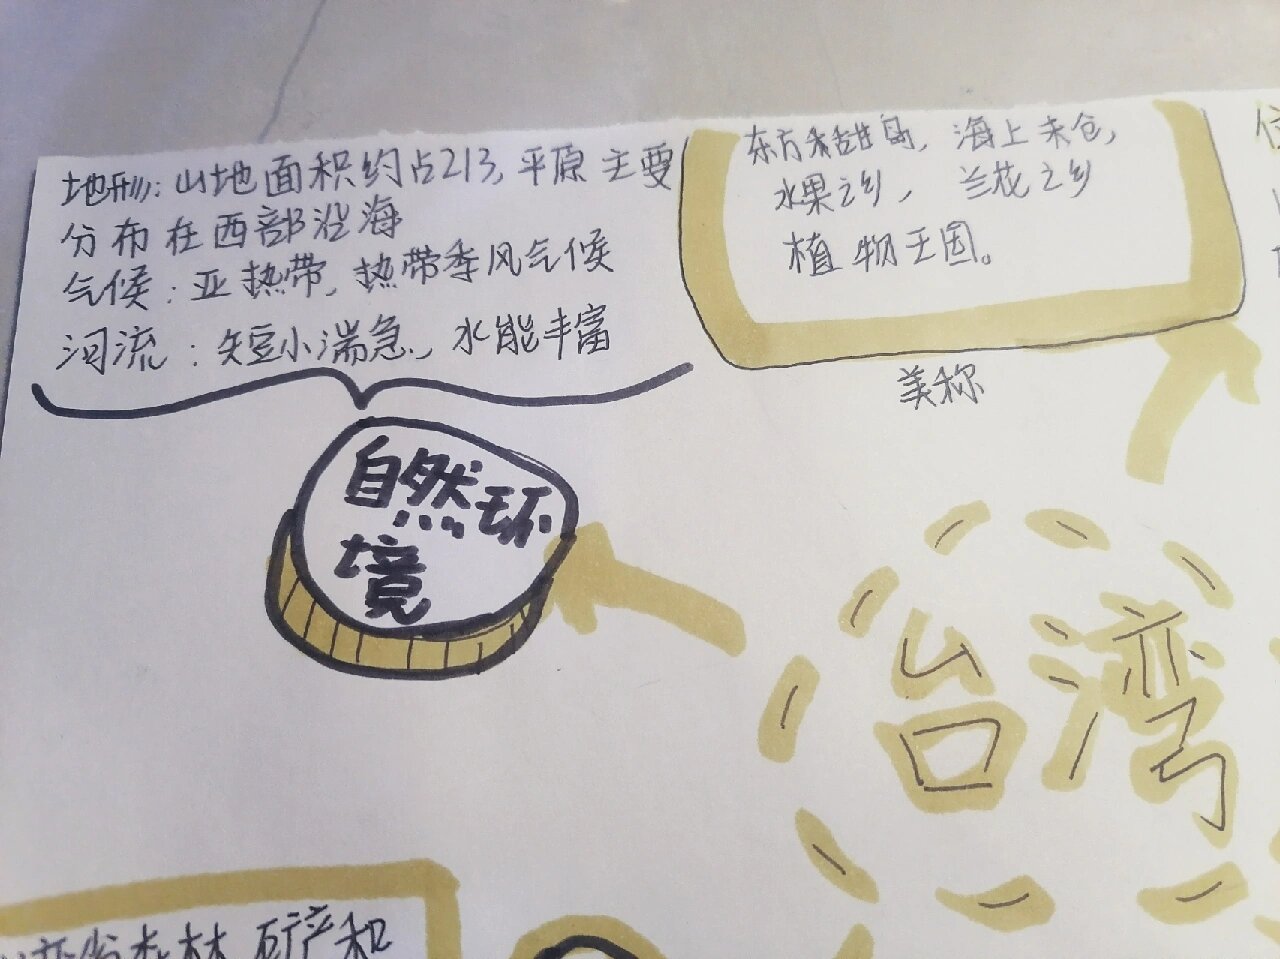 地形:山地面积约占2/3,平原主要
分布在西部沿海
气候:亚热带,热带季风气候
河流:短小湍急,水能丰富
东方甜岛,海上米仓,
水果之乡,兰花之乡
植物王国。
美称
自然环
境
台湾
森林 矿产和